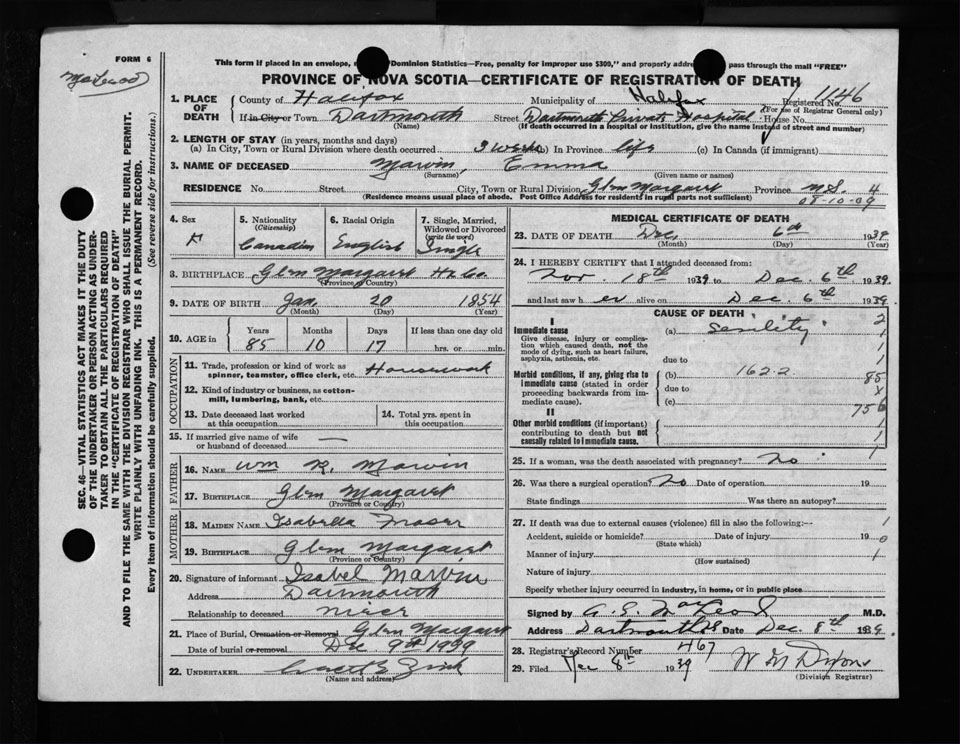 FORM 6
MacLeod
This form if placed in an envelope, Dominion Statistics—Free, penalty for improper use $300," and properly pass through the mail "FREE"
PROVINCE OF NOVA SCOTIA—CERTIFICATE OF REGISTRATION OF DEATH
1. PLACE OF DEATH
County of Halifax Municipality of Halifax Registered No. 1146
(For use of Registrar General only)
If in City or Town Dartmouth Street Dartmouth Private Hospital House No.
(Name) (If death occurred in a hospital or institution, give the name instead of street and number)
2. LENGTH OF STAY (in years, months and days)
(a) In City, Town or Rural Division where death occurred 3 weeks (b) In Province life (c) In Canada (if immigrant)
3. NAME OF DECEASED Marvin, Emma
(Surname) (Given name or names)
RESIDENCE No. Street City, Town or Rural Division Glen Margaret Province N.S. 4
(Residence means usual place of abode. Post Office Address for residents in rural parts not sufficient) 08-10-09
SEC. 46—VITAL STATISTICS ACT MAKES IT THE DUTY
OF THE UNDERTAKER OR PERSON ACTING AS UNDER-
TAKER TO OBTAIN ALL THE PARTICULARS REQUIRED
IN THE "CERTIFICATE OF REGISTRATION OF DEATH"
AND TO FILE THE SAME WITH THE DIVISION REGISTRAR WHO SHALL ISSUE THE BURIAL PERMIT.
WRITE PLAINLY WITH UNFADING INK. THIS IS A PERMANENT RECORD.
Every item of information should be carefully supplied. (See reverse side for instructions.)
4. Sex F
5. Nationality (Citizenship) Canadian
6. Racial Origin English
7. Single, Married, Widowed or Divorced (write the word) Single
8. BIRTHPLACE Glen Margaret Hx Co
(Province or Country)
9. DATE OF BIRTH Jan. 20 1854
(Month) (Day) (Year)
10. AGE in Years 85 Months 10 Days 17 If less than one day old hrs. or min.
OCCUPATION
11. Trade, profession or kind of work as spinner, teamster, office clerk, etc. Housework
12. Kind of industry or business, as cotton-mill, lumbering, bank, etc.
13. Date deceased last worked at this occupation
14. Total yrs. spent in this occupation
15. If married give name of wife or husband of deceased —
FATHER
16. NAME Wm R. Marvin
17. BIRTHPLACE Glen Margaret
(Province or Country)
MOTHER
18. MAIDEN NAME Isabella Fraser
19. BIRTHPLACE Glen Margaret
(Province or Country)
20. Signature of informant Isabel Marvin
Address Dartmouth
Relationship to deceased niece
21. Place of Burial, Cremation or Removal Glen Margaret
Date of burial or removal Dec 9th 1939
22. UNDERTAKER Zink
(Name and address)
MEDICAL CERTIFICATE OF DEATH
23. DATE OF DEATH Dec. 6th 1939
(Month) (Day) (Year)
24. I HEREBY CERTIFY that I attended deceased from:
Nov. 18th 1939 to Dec. 6th 1939
and last saw h er alive on Dec. 6th 1939.
CAUSE OF DEATH
I
Immediate cause (a) Senility 2
Give disease, injury or complication which caused death, not the mode of dying, such as heart failure, asphyxia, asthenia, etc. 1
due to 1
Morbid conditions, if any, giving rise to immediate cause (stated in order proceeding backwards from immediate cause). (b) 162.2 85
due to X
(c) 756
II
Other morbid conditions (if important) contributing to death but not causally related to immediate cause. 1
25. If a woman, was the death associated with pregnancy? No
26. Was there a surgical operation? No Date of operation 19
State findings Was there an autopsy?
27. If death was due to external causes (violence) fill in also the following:— 1
Accident, suicide or homicide? Date of injury 19 0
(State which)
Manner of injury 1
(How sustained)
Nature of injury
Specify whether injury occurred in industry, in home, or in public place
Signed by A. E. MacLeod M.D.
Address Dartmouth NS Date Dec. 8th 1939.
28. Registrar's Record Number 467
29. Filed Dec 8th 1939 W M Dixon
(Division Registrar)